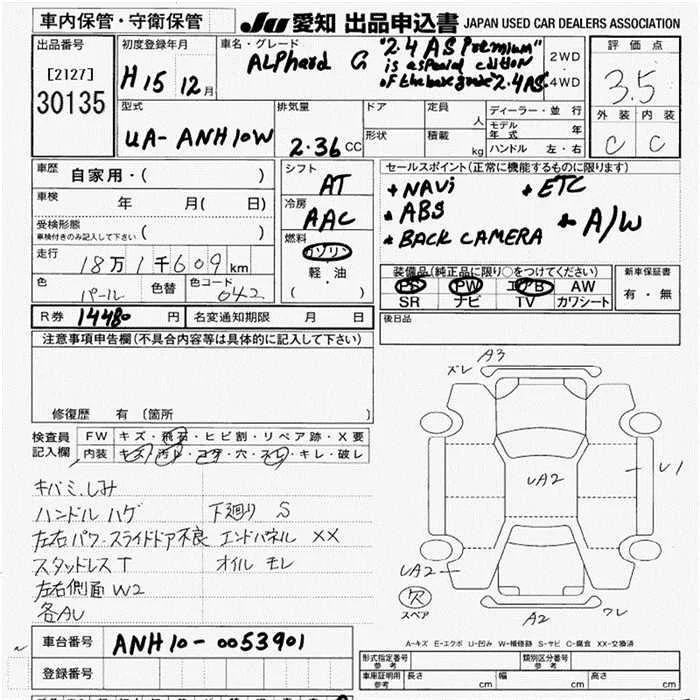 車内保管・守衛保管
JU 愛知 出品申込書 JAPAN USED CAR DEALERS ASSOCIATION
出品番号
[2127]
30135
初度登録年月
H15 12月
車名・グレード
ALPhard G
"2.4 AS Premium"
is aspecial edition
of the base grade 2.4 AS
2WD
4WD
評価点
3.5
外装 内装
C C
型式
UA- ANH10W
排気量
2.36 CC
ドア
形状
定員
人
積載
kg
ディーラー・並行
モデル年式 年
ハンドル 左・右
車歴
自家用・( )
車検
年 月( 日)
受検形態
車検付きのみ記入して下さい ( )
走行
18万1千609km
色
パール
色替
色コード
042
シフト
AT
冷房
AAC
燃料
ガソリン
軽・油
( )
セールスポイント(正常に機能するものに限ります)
* NAVi * ETC
* ABS
* A/W
* BACK CAMERA
装備品(純正品に限り○をつけてください)
PS PW エアB AW
SR ナビ TV カワシート
新車保証書
有・無
R券 14480 円 名変通知期限 月 日
後日品
注意事項申告欄(不具合内容等は具体的に記入して下さい)
修復歴 有 〔箇所 〕
検査員
記入欄
FW キズ・飛石・ヒビ割・リペア跡・X要
内装 キズ・汚れ・コゲ・穴・スレ・キレ・破レ
キバミ.しみ
ハンドル ハゲ 下廻り S
左右パワースライドドア不良 エンドパネル XX
スタッドレス T オイル モレ
左右側面 W2
各AU
A3
ズレ
UA2
U1
UA2
欠
スペア
A2
ワレ
A-キズ E-エクボ U-凹み W-補修跡 S-サビ C-腐食 XX-交換済
車台番号 ANH10-0053901
登録番号
形式指定番号
参考
類別区分番号
参考
車庫証明用
参考
長さ cm 幅 cm 高さ cm